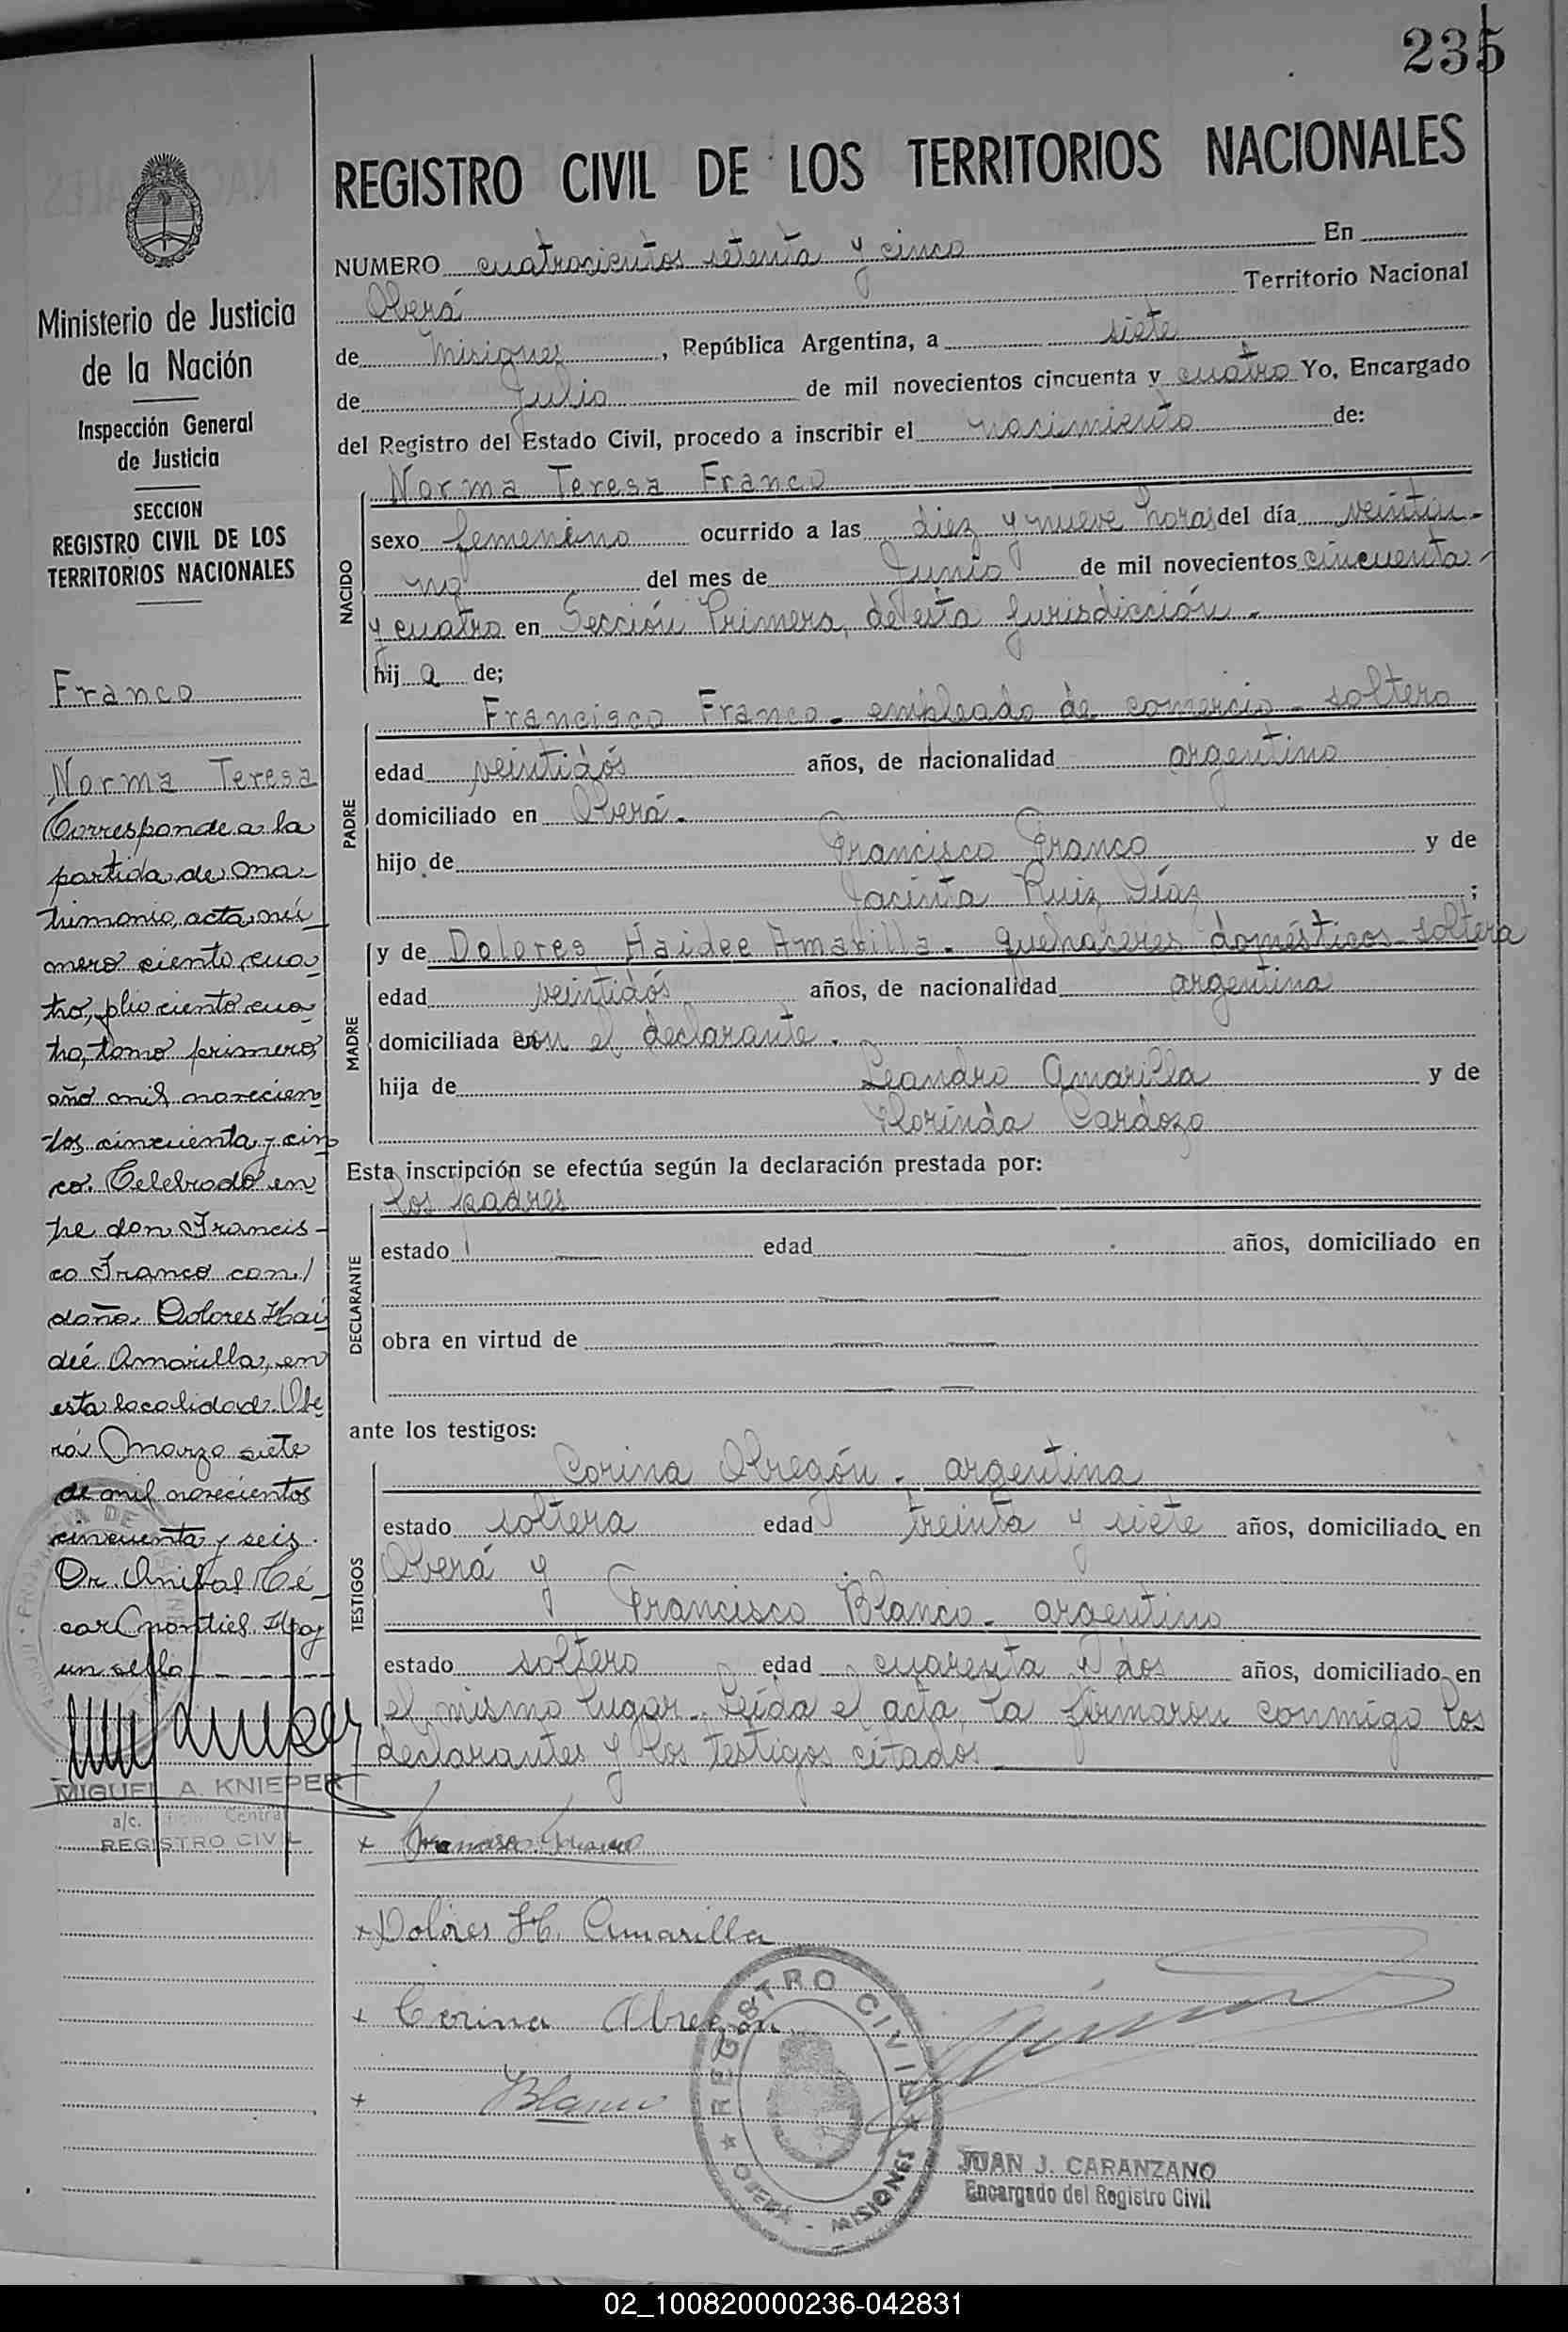 235
REGISTRO CIVIL DE LOS TERRITORIOS NACIONALES
NUMERO cuatrocientos setenta y cinco En
Oberá Territorio Nacional
de Misiones, República Argentina, a siete
de Julio de mil novecientos cincuenta y cuatro Yo, Encargado
del Registro del Estado Civil, procedo a inscribir el nacimiento de:
NACIDO
Norma Teresa Franco
sexo femenino ocurrido a las diez y nueve horas del día veintiu-
no del mes de Junio de mil novecientos cincuenta
y cuatro en Sección Primera, de esta jurisdicción.-
hij a de;
PADRE
Francisco Franco - empleado de comercio - soltero
edad veintidós años, de nacionalidad argentino
domiciliado en Oberá.
hijo de Francisco Franco y de
Jacinta Ruiz Díaz ;
MADRE
y de Dolores Haidee Amarilla - quehaceres domésticos - soltera
edad veintidós años, de nacionalidad argentina
domiciliada con el declarante.
hija de Leandro Amarilla y de
Florinda Cardozo
Esta inscripción se efectúa según la declaración prestada por:
DECLARANTE
los padres
estado edad años, domiciliado en
obra en virtud de
ante los testigos:
TESTIGOS
Corina Obregón - argentina
estado soltera edad treinta y siete años, domiciliada en
Oberá y
Francisco Blanco - argentino
estado soltero edad cuarenta y dos años, domiciliado en
el mismo lugar. Leída el acta, la firmaron conmigo los
declarantes y los testigos citados.
x Francisco Franco
x Dolores H. Amarilla
x Corina Obregón
x Blanco
REGISTRO CIVIL
OBERA - MISIONES
JUAN J. CARANZANO
Encargado del Registro Civil
Ministerio de Justicia
de la Nación
Inspección General
de Justicia
SECCION
REGISTRO CIVIL DE LOS
TERRITORIOS NACIONALES
Franco
Norma Teresa
Corresponde a la
partida de ma-
trimonio, acta nú-
mero ciento cua-
tro, folio ciento cua-
tro, tomo primero
año mil novecien-
tos cincuenta y cin-
co. Celebrado en-
tre don Francis-
co Franco con
doña Dolores Hai-
deé Amarilla, en
esta localidad. Obe-
rá Marzo siete
de mil novecientos
cincuenta y seis.
Dr. Anibal Cé-
sar Montiel Hay
un sello
MIGUEL A. KNIEPER
a/c. Central
REGISTRO CIVIL
02_100820000236-042831